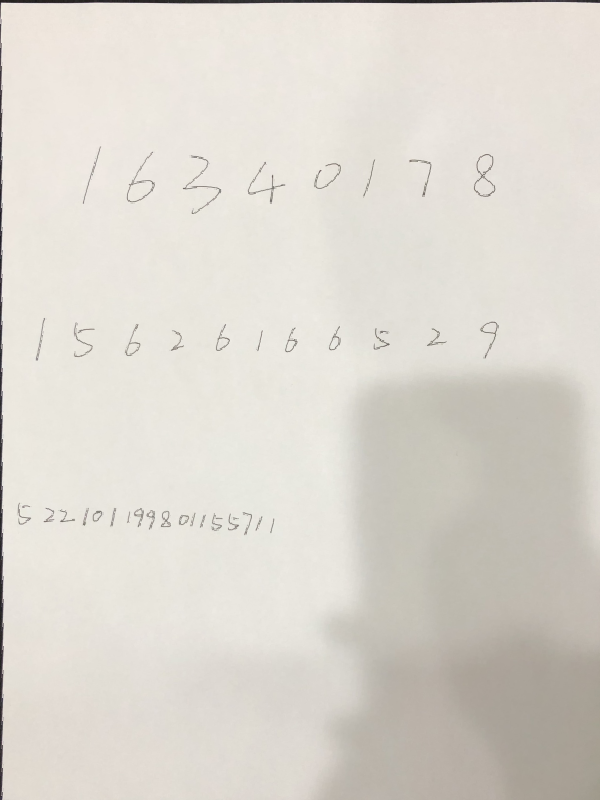 16340178
15626166529
522101199801155711